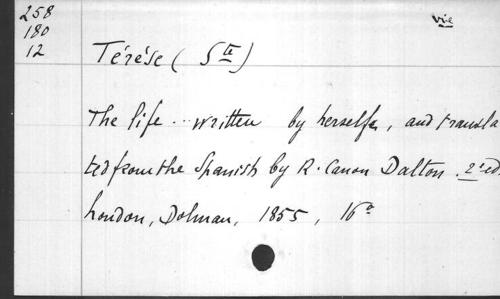 258
180
12
vie
Térése ( Ste)
The life... written by herselfe, and transla
ted from the Spanish by R. Canon Dalton. 2d ed.
London, Dolman, 1855, 16o